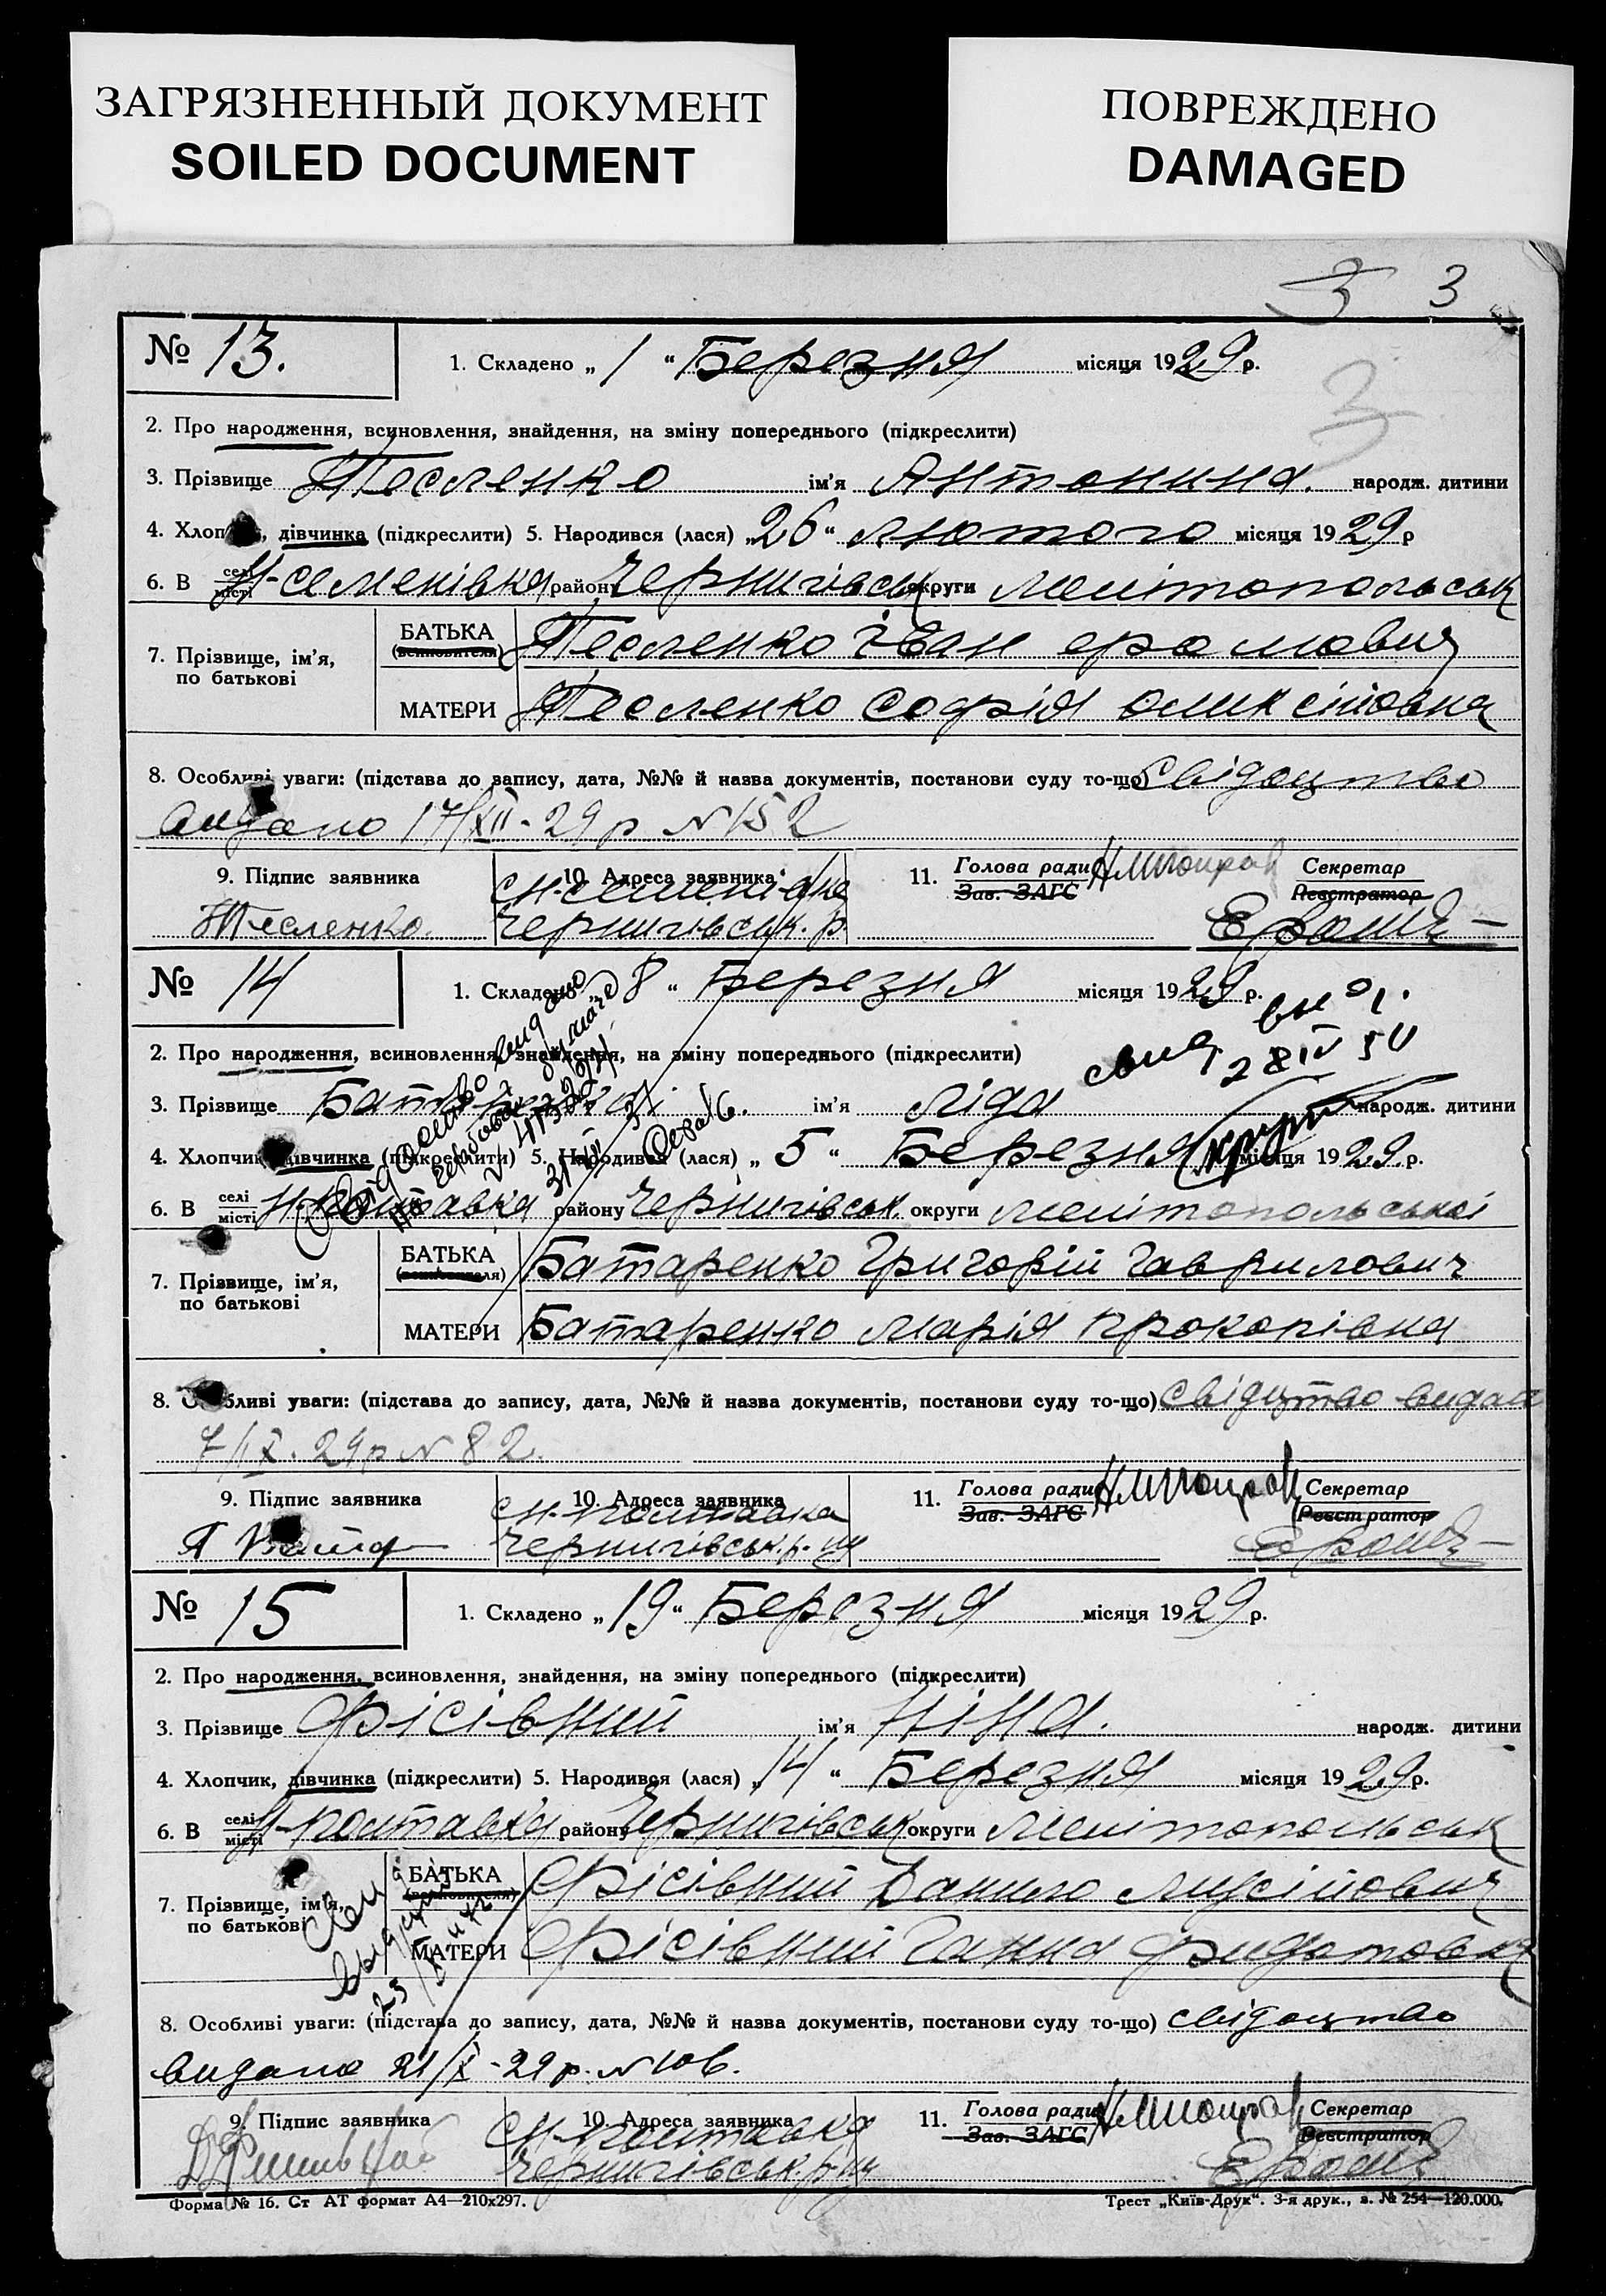 ЗАГРЯЗНЕННЫЙ ДОКУМЕНТ
SOILED DOCUMENT
ПОВРЕЖДЕНО
DAMAGED
3 3
3
№ 13.
1. Складено „ 1 “ Березня місяця 1929 р.
2. Про народження, всиновлення, знайдення, на зміну попереднього (підкреслити)
3. Прізвище Тесленко ім'я Антонина. народж. дитини
4. Хлопчик, дівчинка (підкреслити) 5. Народився (лася) „26“ лютого місяця 1929 р
6. В селі місті Н-Семенівка району Чернигівськ округи Мелітопольськ
7. Прізвище, ім'я, по батькові
БАТЬКА (всиновителя) Тесленко Іван
МАТЕРИ Тесленко Софія Оликсіїовна
8. Особливі уваги: (підстава до запису, дата, №№ й назва документів, постанови суду то-що) Свідоцтво
видано 17/XII-29 р N 152
9. Підпис заявника
Тесленко
10. Адреса заявника
с Н-Семенівка
Чернигівськ. р.
11. Голова ради
Зав. ЗАГС
Секретар
Реєстратор
№ 14
1. Складено „ 8 “ Березня місяця 1929 р.
2. Про народження, всиновлення, знайдення, на зміну попереднього (підкреслити)
28 IV 50
3. Прізвище ім'я Ліда народж. дитини
4. Хлопчик, дівчинка (підкреслити) 5. Народився (лася) „ 5 “ Березня місяця 1929 р.
6. В селі місті Н-Полтавка району Чернигівськ. округи Мелітопольської
7. Прізвище, ім'я, по батькові
БАТЬКА (всиновителя) Батаренко Григорій Гаврилович
МАТЕРИ Батаренко Марія Прокопівна
8. Особливі уваги: (підстава до запису, дата, №№ й назва документів, постанови суду то-що) Свідцтво видан
7/IX. 29 р N 82.
9. Підпис заявника
10. Адреса заявника
с Н-Полтавка
Чернигівськ. р-ну
11. Голова ради
Зав. ЗАГС
Секретар
Реєстратор
№ 15
1. Складено „ 19 “ Березня місяця 1929 р.
2. Про народження, всиновлення, знайдення, на зміну попереднього (підкреслити)
3. Прізвище Фісівний ім'я Ніна. народж. дитини
4. Хлопчик, дівчинка (підкреслити) 5. Народився (лася) „ 14 “ Березня місяця 1929 р.
6. В селі місті Н-Полтавка району Чернигівськ округи Мелітопольськ
7. Прізвище, ім'я, по батькові
БАТЬКА (всиновителя) Фісівний Данило
МАТЕРИ Фісівний Ганна
8. Особливі уваги: (підстава до запису, дата, №№ й назва документів, постанови суду то-що) свідоцтво
видано 21/X-29 р. N 106.
9. Підпис заявника
10. Адреса заявника
с Н-Полтавка
Чернигівськ. р-ну
11. Голова ради
Зав. ЗАГС
Секретар
Реєстратор
Форма № 16. Ст АТ формат А4—210х297.
Трест „Київ-Друк“. 3-я друк., з. № 254—120.000.